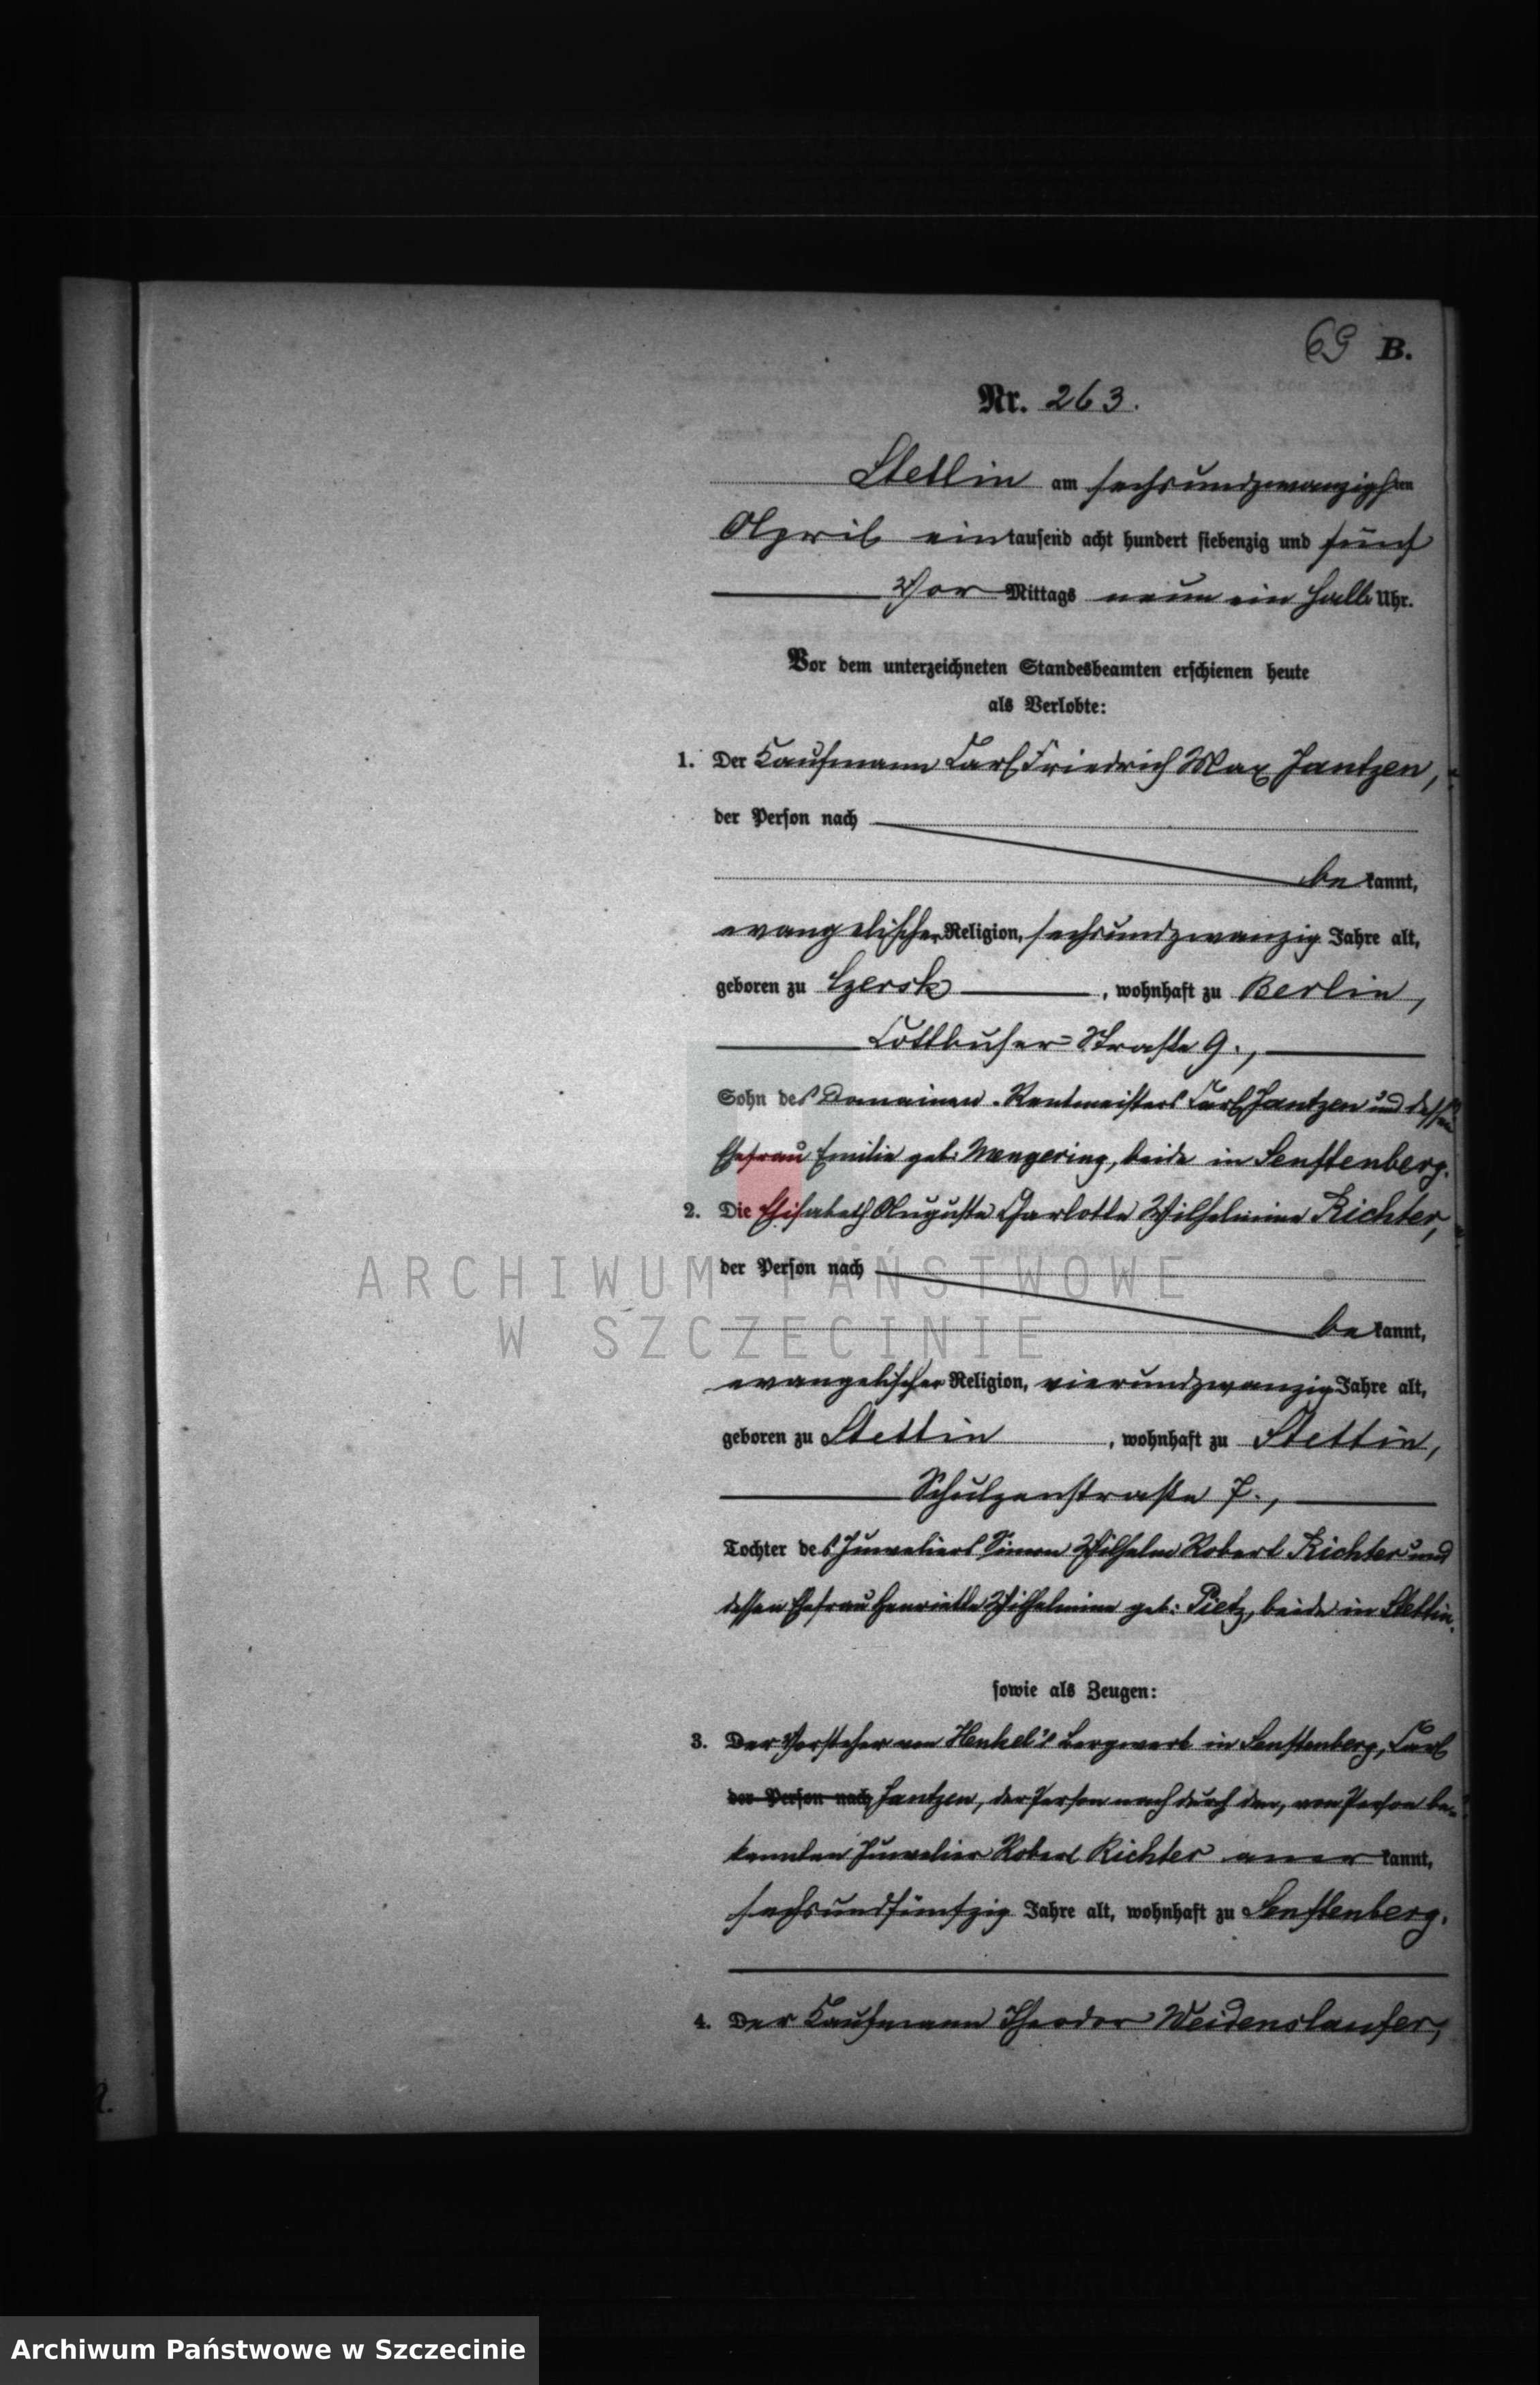 69 B.
Nr. 263.
Stettin am sechsundzwanzigsten
April eintausend acht hundert siebenzig und fünf
Vor Mittags neun ein halb Uhr.
Vor dem unterzeichneten Standesbeamten erschienen heute
als Verlobte:
1. Der Kaufmann Carl Friedrich Max Jantzen,
der Person nach
bekannt,
evangelischer Religion, sechsundzwanzig Jahre alt,
geboren zu Czersk, wohnhaft zu Berlin,
Cottbuser-Straße 9.,
Sohn des Domainen-Rentmeisters Carl Jantzen und dessen
Ehefrau Emilie geb: Mengering, beide in Senftenberg.
2. Die Elisabeth Auguste Charlotte Wilhelmine Richter,
der Person nach
bekannt,
evangelischer Religion, vierundzwanzig Jahre alt,
geboren zu Stettin, wohnhaft zu Stettin,
Schulzenstraße 7.,
Tochter des Juweliers Simon Wilhelm Robert Richter und
dessen Ehefrau Henriette Wilhelmine geb: Pietz, beide in Stettin.
sowie als Zeugen:
3. Der Vorsteher von Henkel's Bergwerk in Senftenberg, Carl
der Person nach Jantzen, der Person nach durch den, von Person be-
kannten Juwelier Robert Richter anerkannt,
sechsundfünfzig Jahre alt, wohnhaft zu Senftenberg.
4. Der Kaufmann Theodor Weidenslaufer,
ARCHIWUM PAŃSTWOWE
W SZCZECINIE
Archiwum Państwowe w Szczecinie